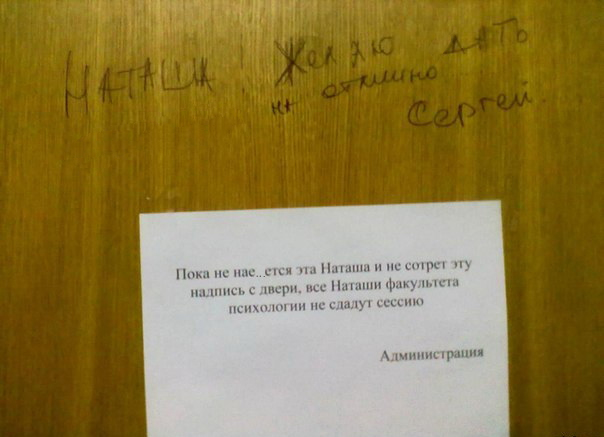 Наташа! Желаю сдать
на отлично
Сергей.
Пока не нае...ется эта Наташа и не сотрет эту
надпись с двери, все Наташи факультета
психологии не сдадут сессию
Администрация